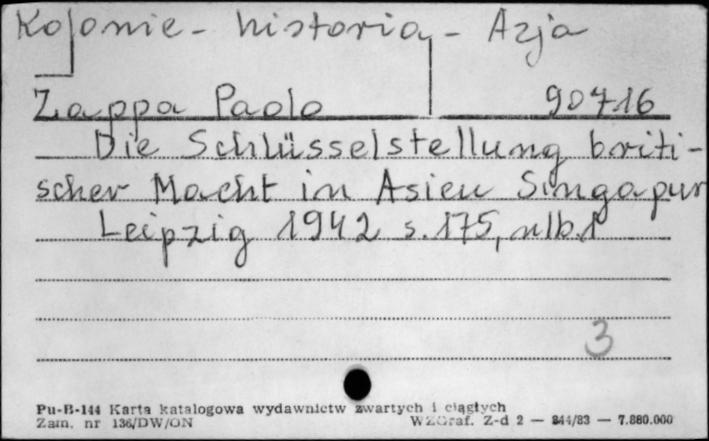 Kolonie - historia - Azja
Zappa Paolo 90716
Die Schlüsselstellung briti-
scher Macht in Asien Singapur
Leipzig 1942 s. 175, nlb. 1
3
Pu-B-144 Karta katalogowa wydawnictw zwartych i ciągłych
Zam. nr 136/DW/ON WZGraf. Z-d 2 — 844/83 — 7.880.000